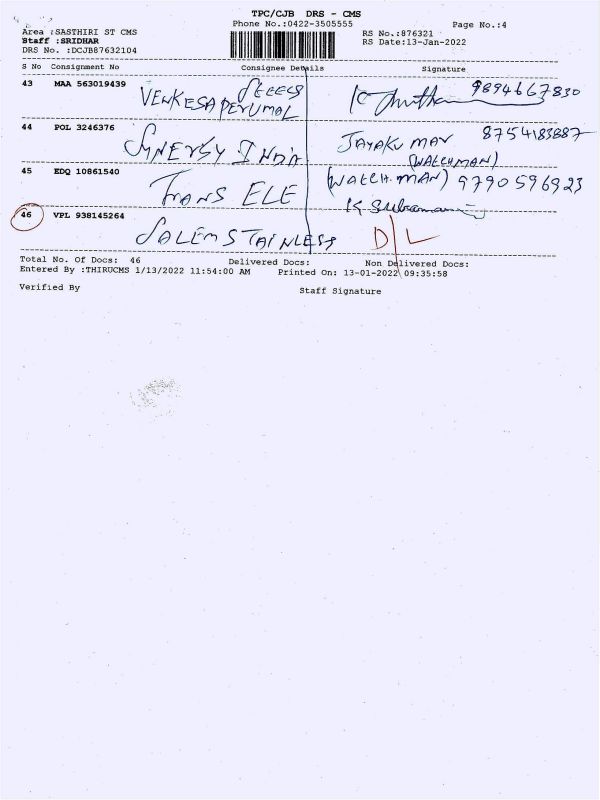 TPC/CJB DRS - CMS
Phone No.:0422-3505555 Page No.:4
Area :SASTHIRI ST CMS RS No.:876321
Staff :SRIDHAR RS Date:13-Jan-2022
DRS No. :DCJB87632104
S No Consignment No Consignee Details Signature
43 MAA 563019439 VENKESAPERUMAL STEELS 9894667830
44 POL 3246376 SYNERGY INDIA JAYAKUMAR 8754183887
(WATCHMAN)
45 EDQ 10861540 TRANS ELE (WATCH.MAN) 9790596923
K Subramani
46 VPL 938145264 SALEM STAINLESS D/L
Total No. Of Docs: 46 Delivered Docs: Non Delivered Docs:
Entered By :THIRUCMS 1/13/2022 11:54:00 AM Printed On: 13-01-2022 09:35:58
Verified By Staff Signature